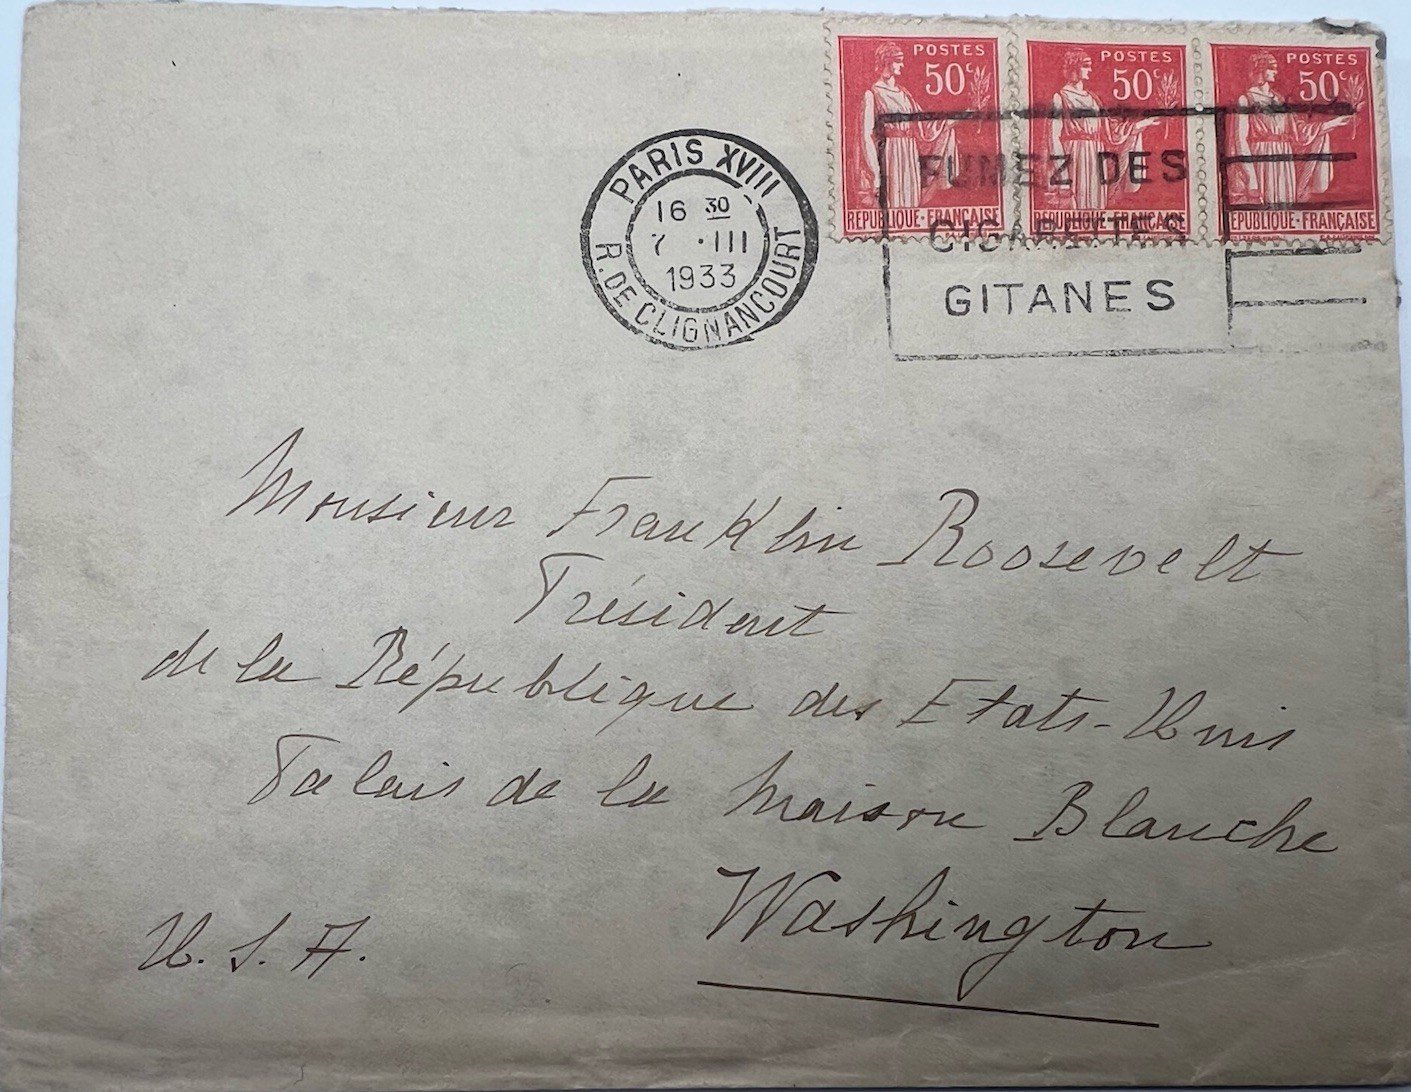 POSTES POSTES POSTES
50c 50c 50c
RÉPUBLIQUE·FRANÇAISE RÉPUBLIQUE·FRANÇAISE RÉPUBLIQUE·FRANÇAISE
PARIS XVIII
16 30
7 ·III
1933
R. DE CLIGNANCOURT
FUMEZ DES
CIGARETTES
GITANES
Monsieur Franklin Roosevelt
Président
de la République des Etats-Unis
Palais de la Maison Blanche
Washington
U. S. A.